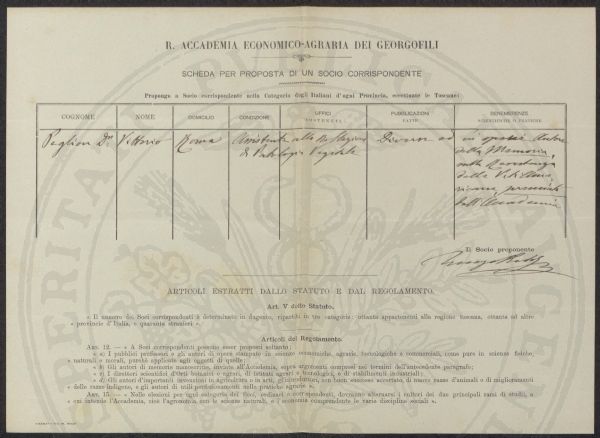 R. ACCADEMIA ECONOMICO-AGRARIA DEI GEORGOFILI
SCHEDA PER PROPOSTA DI UN SOCIO CORRISPONDENTE
Propongo a Socio corrispondente nella Categoria degli Italiani d'ogni Provincia, eccettuate le Toscane:
COGNOME NOME DOMICILIO CONDIZIONE UFFICI PUBBLICAZIONI FATTE BENEMERENZE SCIENTIFICHE O PRATICHE
Peglion Dr. Vittorio Roma Assistente alla R. Stazione di Patologia Vegetale Diverse ed in specie Autore
della Memoria,
sulla
delle Viti Ame-
ricane, premiata
dall'Accademia
Il Socio proponente
ARTICOLI ESTRATTI DALLO STATUTO E DAL REGOLAMENTO.
Art. V dello Statuto.
« Il numero dei Soci corrispondenti è determinato in dugento, ripartiti in tre categorie: ottanta appartenenti alla regione toscana, ottanta ad altre
« provincie d'Italia, e quaranta stranieri ».
Articoli del Regolamento.
ART. 12. — « A Soci corrispondenti possono esser proposti soltanto:
« a) I pubblici professori e gli autori di opere stampate in scienze economiche, agrarie, tecnologiche e commerciali, come pure in scienze fisiche,
« naturali e morali, purchè applicate agli oggetti di quelle;
« b) Gli autori di memorie manoscritte, inviate all'Accademia, sopra argomenti compresi nei termini dell'antecedente paragrafo;
« c) I direttori scientifici d'Orti botanici e agrari, di istituti agrari e tecnologici, e di stabilimenti industriali;
« d) Gli autori d'importanti invenzioni in agricoltura o in arti, gl'introduttori, con buon successo accertato, di nuove razze d'animali o di miglioramenti
« delle razze indigene, e gli autori di utili perfezionamenti nelle pratiche agrarie ».
ART. 15. — « Nelle elezioni per ogni categoria dei Soci, ordinari e corrispondenti, dovranno alternarsi i cultori dei due principali rami di studi, a
« cui intende l'Accademia, cioè l'agronomia, con le scienze naturali, e l'economia comprendente le varie discipline sociali ».